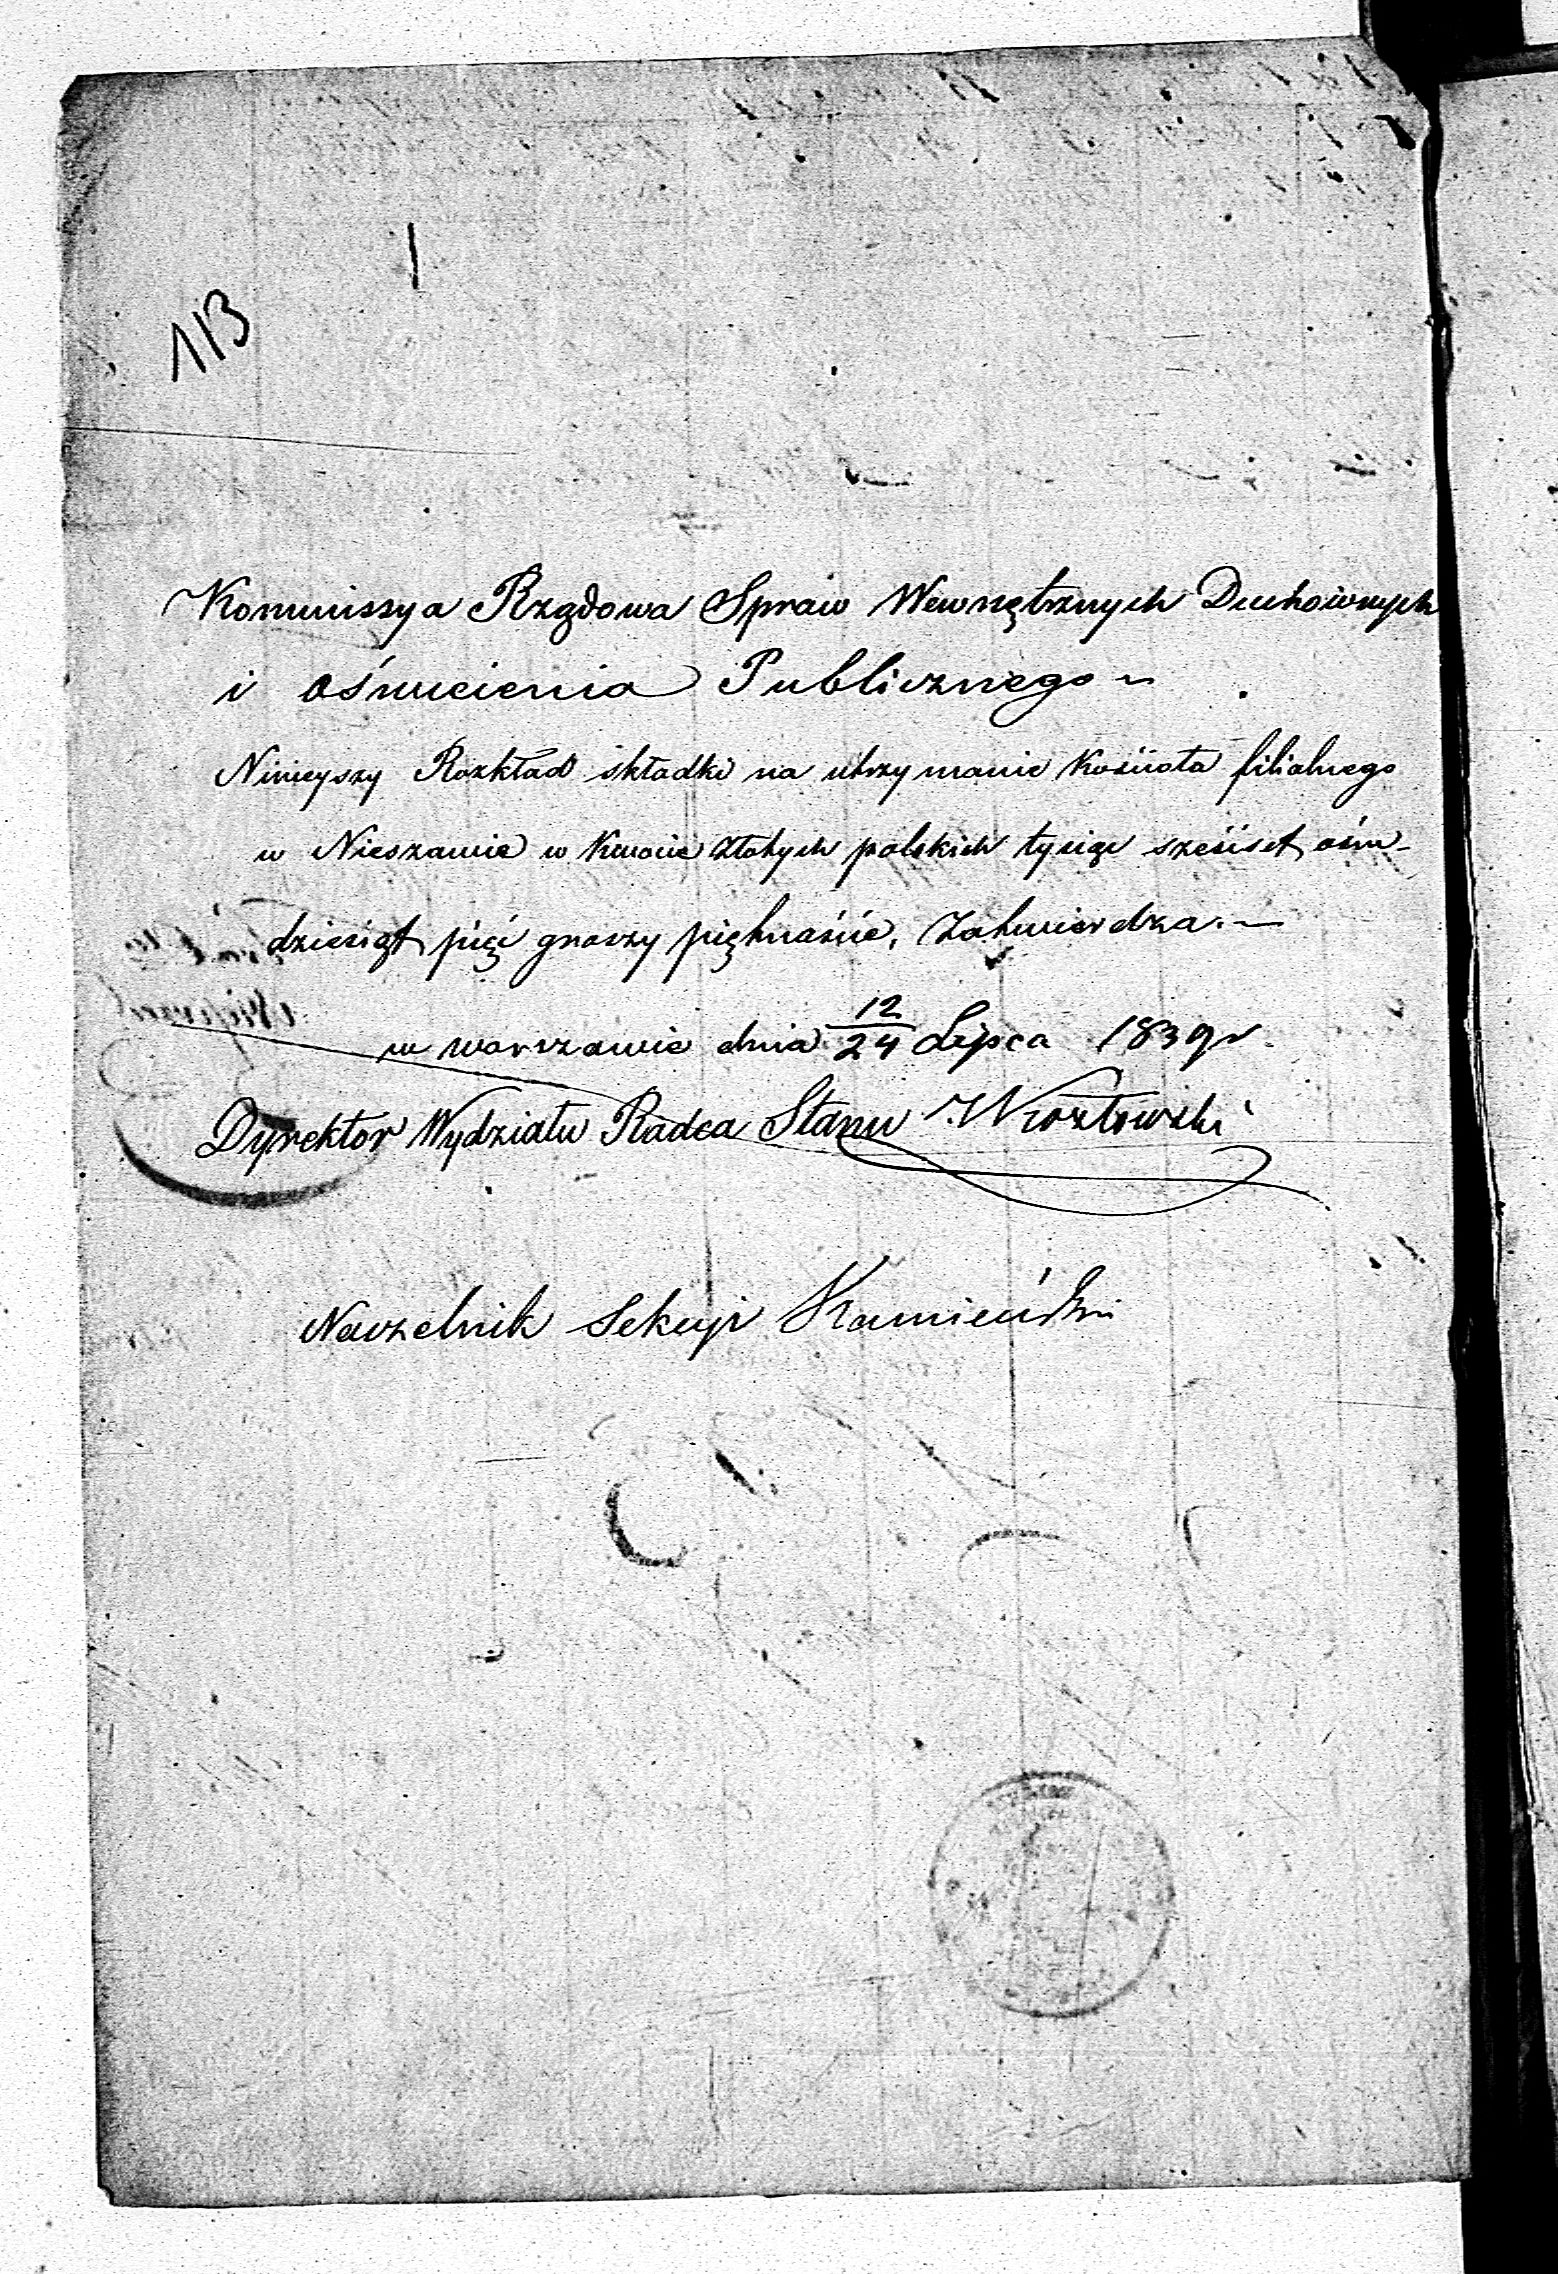 113
Kommissya Rządowa Spraw Wewnętrznych Duchownych
i oświecienia Publicznego
Ninieyszy Rozkład składki na utrzymanie Kościoła filialnego
w Nieszawie w kwocie złotych polskich tysiąc sześćset ośm-
dziesiąt pięć groszy piętnaście, Zatwierdza.—
w Warszawie dnia 12/24 Lipca 1839 r.
Dyrektor Wydziału Radca Stanu Kozłowski
Naczelnik Sekcyi Kamieński